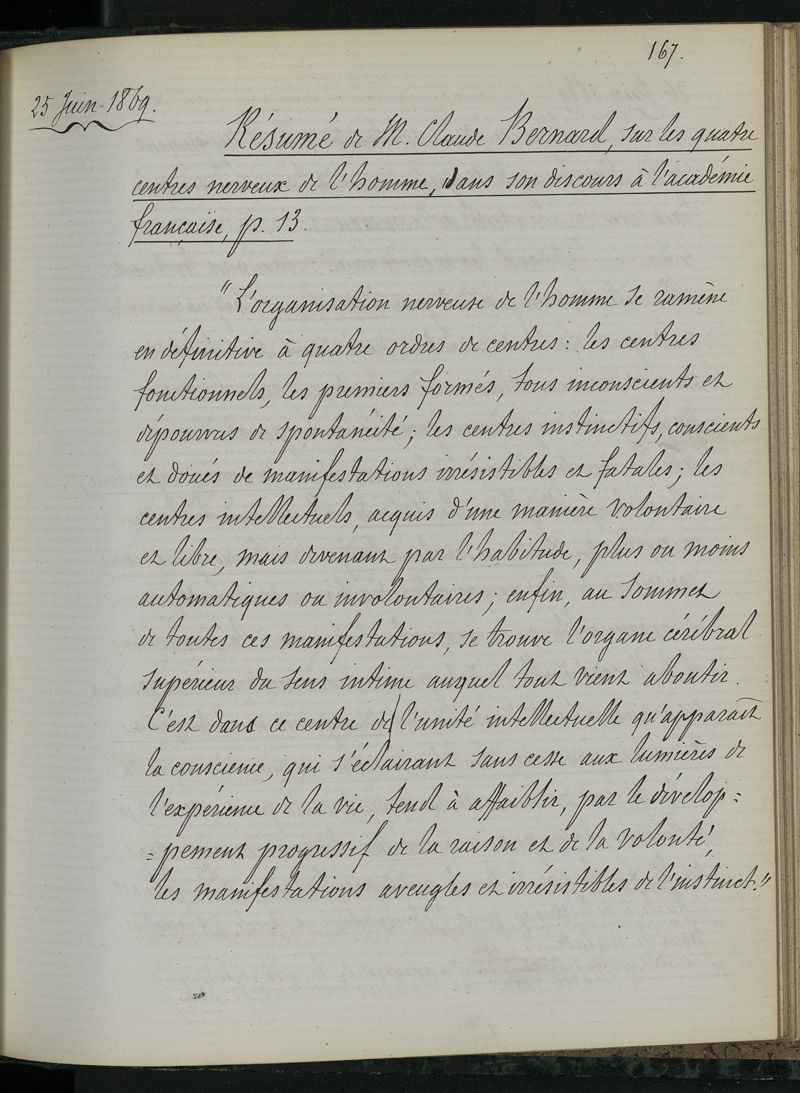 167.
25 Juin 1869.
Résumé de M. Claude Bernard, sur les quatre
centres nerveux de l'homme, dans son discours à l'académie
française, p. 13.
"L'organisation nerveuse de l'homme se ramène
en définitive à quatre ordres de centres : les centres
fonctionnels, les premiers formés, tous inconscients et
dépourvus de spontanéité ; les centres instinctifs, conscients
et doués de manifestations irrésistibles et fatales ; les
centres intellectuels, acquis d'une manière volontaire
et libre, mais devenant par l'habitude, plus ou moins
automatiques ou involontaires ; enfin, au sommet
de toutes ces manifestations, se trouve l'organe cérébral
supérieur du sens intime auquel tout vient aboutir.
C'est dans ce centre de l'unité intellectuelle qu'apparaît
la conscience, qui s'éclairant sans cesse aux lumières de
l'expérience de la vie, tend à affaiblir, par le dévelop=
=pement progressif de la raison et de la volonté,
les manifestations aveugles et irrésistibles de l'instinct."